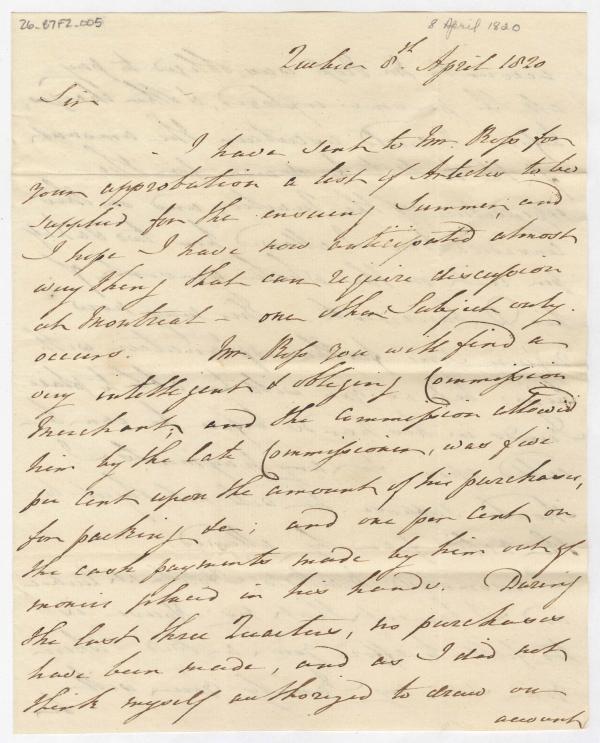 26-87F2-005
8 April 1820
Quebec 8th April 1820
Sir
- I have sent to Mr. Ross for
your approbation a list of Articles to be
supplied for the ensuing Summer, and
I hope I have now anticipated almost
every thing that can require discussion
at Montreal - one other Subject only
occurs. Mr. Ross You will find a
very intelligent & obliging Commission
Merchant; and the Commission allowed
him by the late Commissioner, was five
per Cent upon the amount of his purchases,
for packing &c; and one per Cent on
the cash payments made by him out of
monies placed in his hands. During
the last three Quarters, no purchases
have been made, and as I did not
think myself authorized to draw on
account